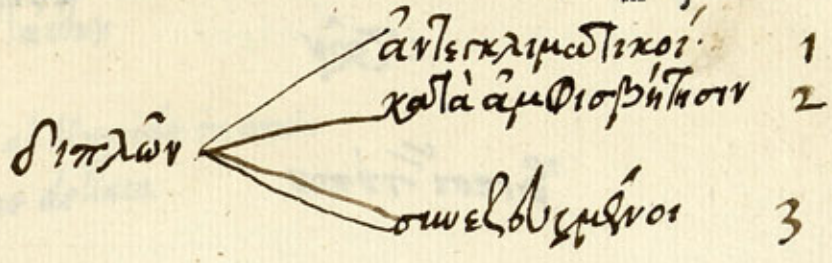 διπλῶν
ἀντεγκλιματικοί· 1
κατὰ ἀμφισβήτησιν 2
συνεζευγμένοι 3